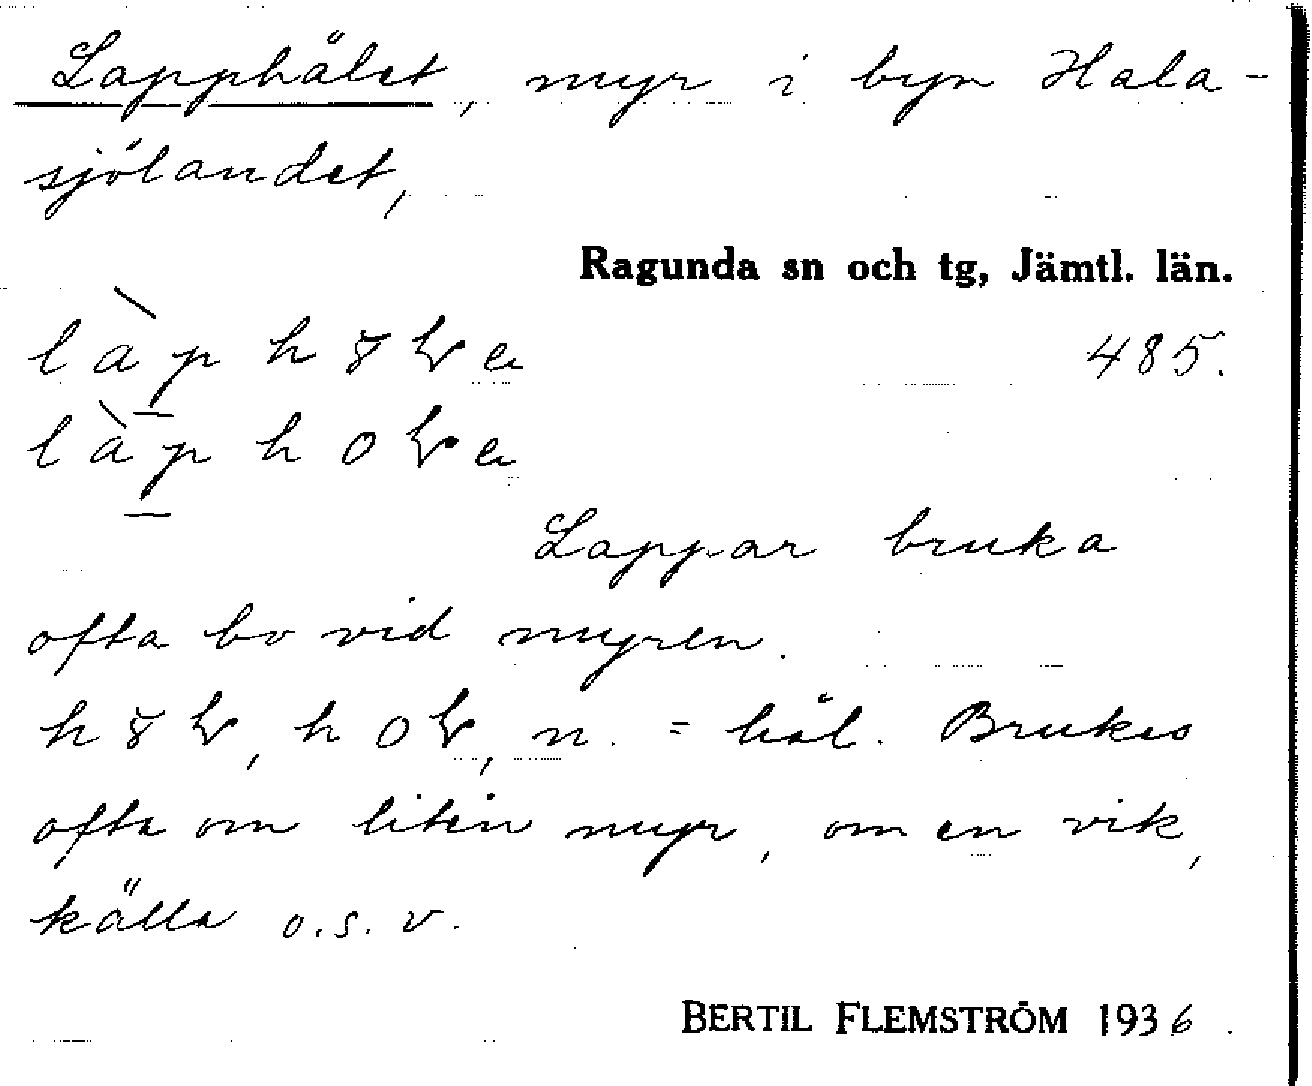 Lapphålet, myr i byn Hala-
sjölandet,
Ragunda sn och tg, Jämtl. län.
485.
Lappar bruka
ofta bo vid myren.
n. = hål. Brukes
ofta om liten myr, om en vik,
källa o.s.v.
BERTIL FLEMSTRÖM 1936.